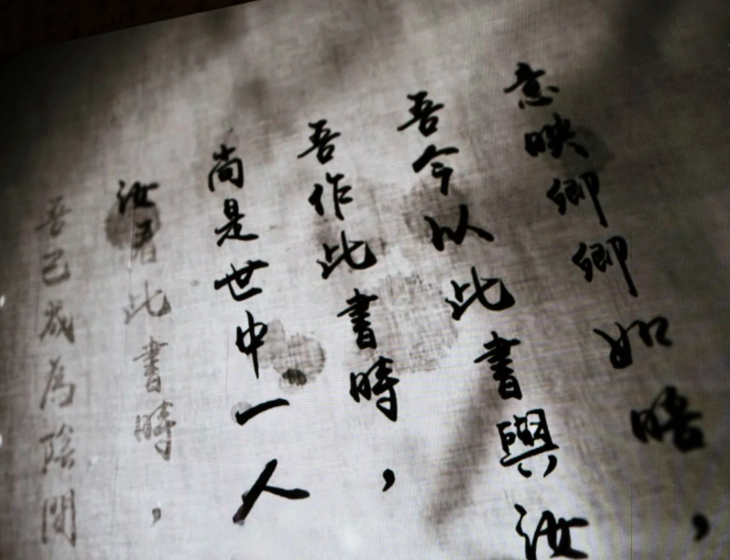 意映卿卿如晤，
吾今以此書與汝
吾作此書時，
尚是世中一人
汝看此書時，
吾已成為陰間